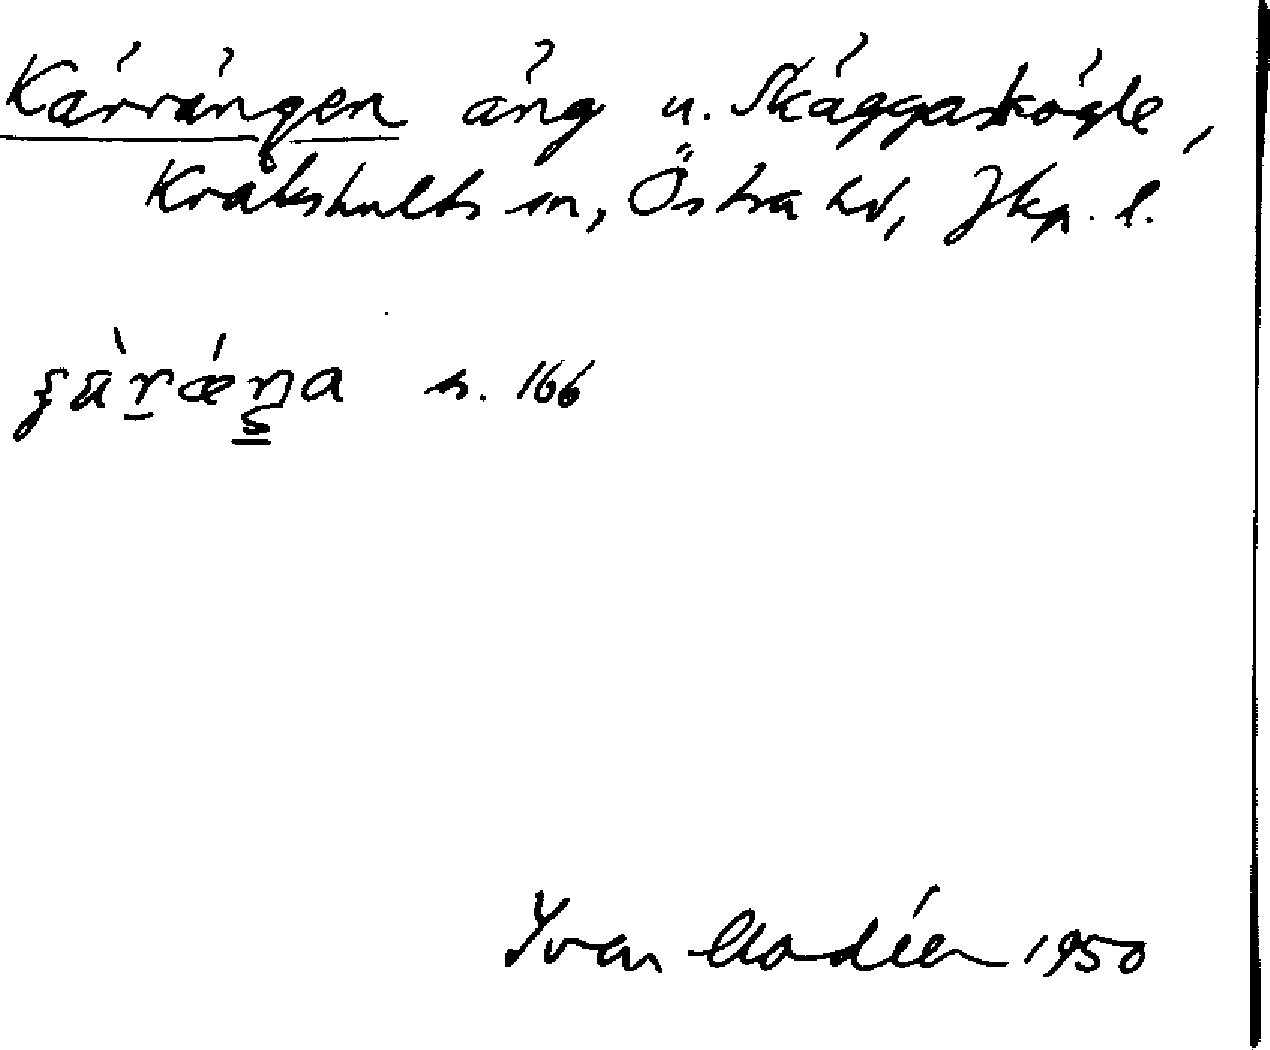 Kärrängen äng u. Skäggaskögle,
Kråkshults sn, Östra hd, Jkp. l.
s. 166
Ivar Modéer 1950